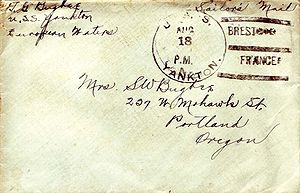 Sailors Mail
U.S.S. Yankton
European Waters
U. S. S.
AUG
18
P.M.
YANKTON.
BREST
FRANCE
Mrs. SW Bugbee
237 W Mohawk St.
Portland
Oregon